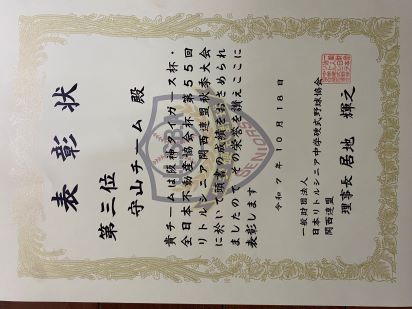 表彰状
第三位
守山チーム 殿
貴チームは阪神タイガース杯・
全日本不動産協会杯 第55回
リトルシニア関西連盟秋季大会
に於いて頭書の成績をおさめられ
ましたのでその栄誉を讃えここに
表彰します
令和7年10月18日
一般財団法人
日本リトルシニア中学硬式野球協会
関西連盟
理事長 居地 輝之
SENIORS